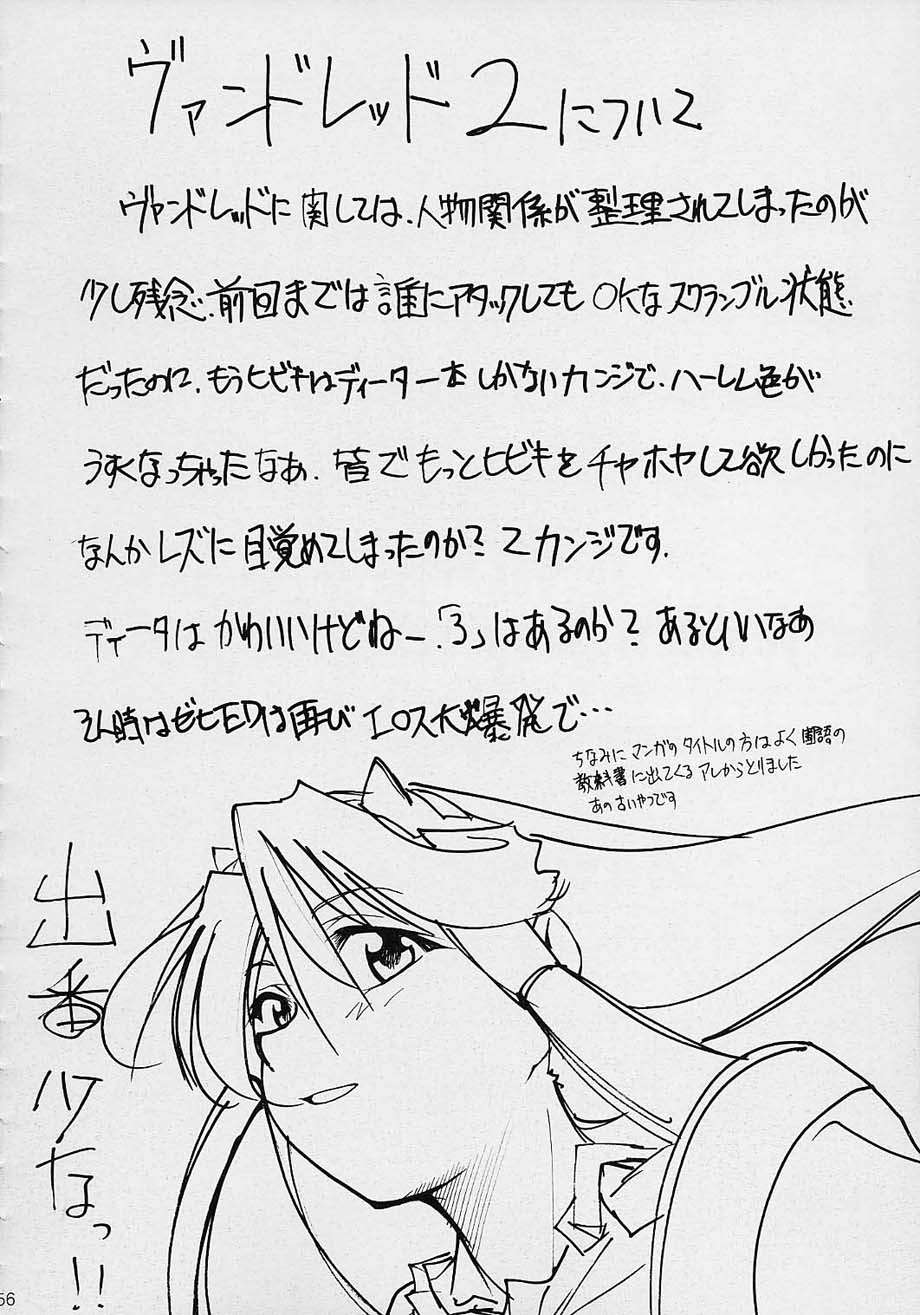 ヴァンドレッド2について
ヴァンドレッドに関しては、人物関係が整理されてしまったのが
少し残念.前回までは誰にアタックしてもOKなスクランブル状態
だったのに、もうヒビキはディーター本しかないカンジで、ハーレム色が
うすくなっちゃったなあ、皆でもっとヒビキをチヤホヤして欲しかったのに
なんかレズに目覚めてしまったのか?てカンジです.
ディータはかわいいけどねー.「3」はあるのか?あるといいなあ
その時はぜひEDは再びエロス大爆発で…
ちなみにマンガのタイトルの方はよく国語の
教科書に出てくるアレからとりました
あの古いやつです
出番少なっ!!
56